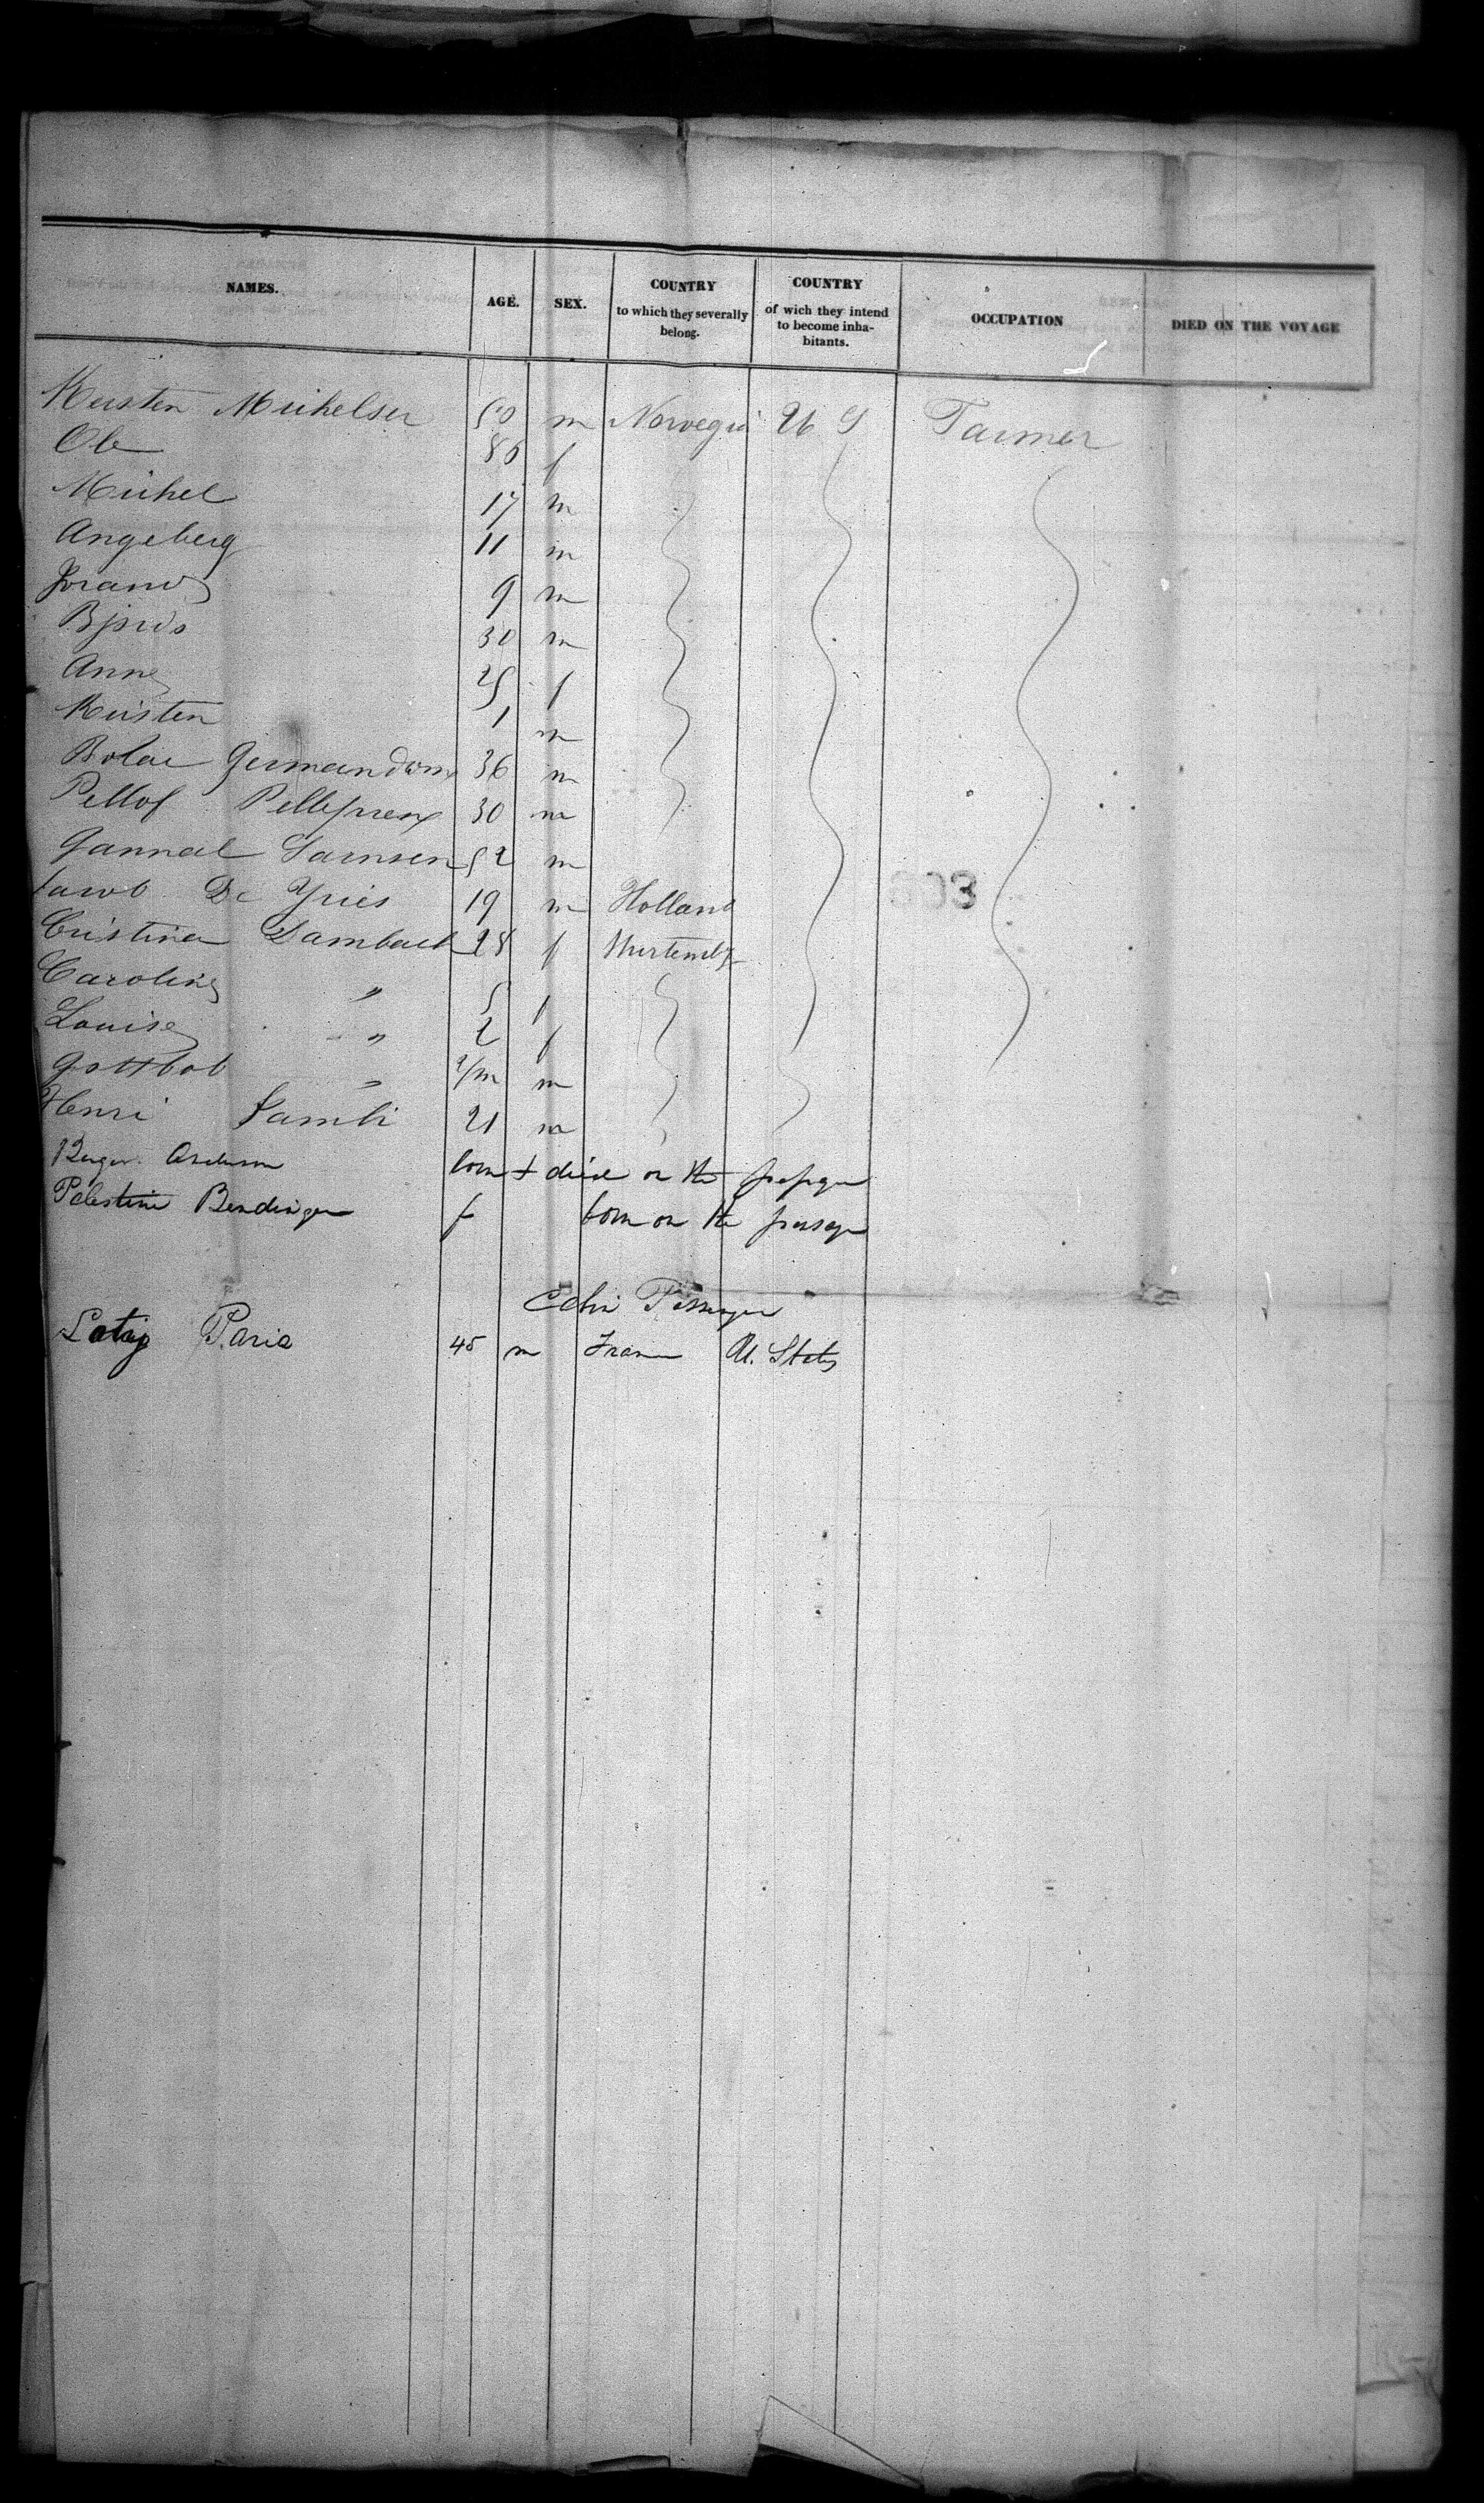 NAMES. AGE. SEX. COUNTRY to which they severally belong. COUNTRY of wich they intend to become inhabitants. OCCUPATION DIED ON THE VOYAGE
Kersten Michelsen 50 m Norwegia U S Farmer
Ole 86 f
Michel 17 m
Angeberg 11 m
Jorand 9 m
30 m
Anne 25 f
Kersten 1 m
Germandson 36 m
30 m
52 m
Jacob De Vries 19 m Holland
Cristina Dambach 28 f Wurtembg
Caroline " 5 f
Louise " 2 f
Gottlob " m
Henri 21 m
born & died on the passage
Palestine Bendinger f born on the passage
Cabin Passenger
Paris 45 m France U. States
603